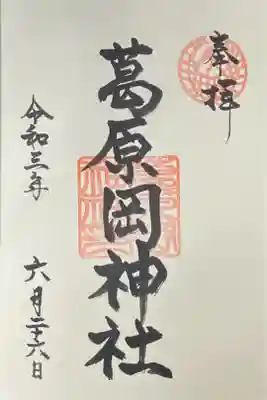 奉拝
葛原岡神社
令和三年
六月二十六日